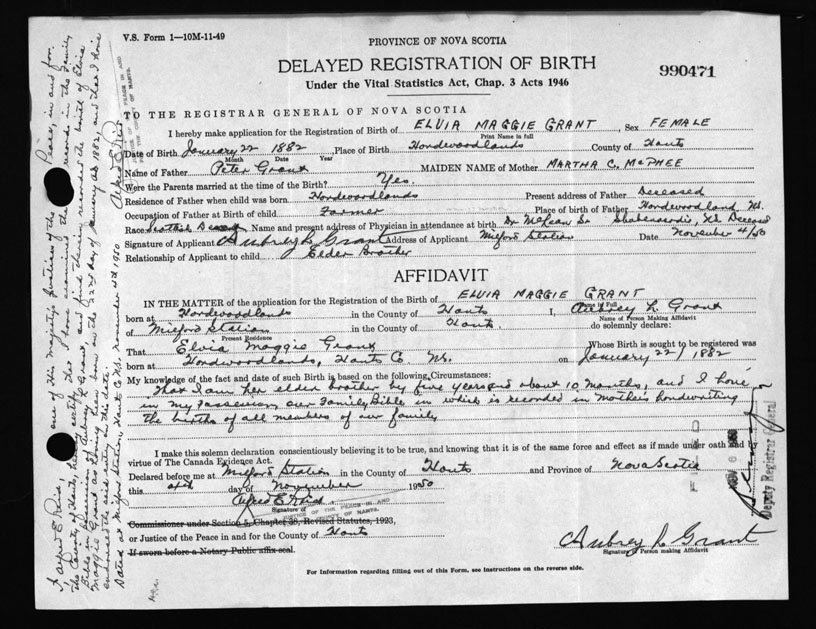 V.S. Form 1—10M-11-49
PROVINCE OF NOVA SCOTIA
DELAYED REGISTRATION OF BIRTH
990471
Under the Vital Statistics Act, Chap. 3 Acts 1946
TO THE REGISTRAR GENERAL OF NOVA SCOTIA
I hereby make application for the Registration of Birth of ELVIA MAGGIE GRANT, Sex FEMALE
Print Name in full
Date of Birth January 22 1882 Place of Birth Hardwoodlands County of Hants
Month Date Year
Name of Father Peter Grant MAIDEN NAME of Mother MARTHA C. McPHEE
Were the Parents married at the time of Birth? Yes.
Residence of Father when child was born Hardwoodlands Present address of Father Deceased
Occupation of Father at Birth of child Farmer Place of birth of Father Hardwoodland NS.
Race Scottish Name and present address of Physician in attendance at birth Dr McLean Sr Shubenacadie, NS Deceased
Signature of Applicant Aubrey L Grant Address of Applicant Milford Station Date November 4/50
Relationship of Applicant to child Elder Brother
AFFIDAVIT
IN THE MATTER of the application for the Registration of the Birth of ELVIA MAGGIE GRANT
Name in Full
born at Hardwoodlands in the County of Hants I, Aubrey L. Grant
Name of Person Making Affidavit
of Milford Station in the County of Hants do solemnly declare:
Present Residence
That Elvia Maggie Grant Whose Birth is sought to be registered was
born at Hardwoodlands, Hants Co. NS. on January 22/1882
My knowledge of the fact and date of such Birth is based on the following Circumstances:
That I am her elder brother by five years and about 10 months, and I have
in my possession, our Family Bible in which is recorded in mother's handwriting
the births of all members of our family
I make this solemn declaration conscientiously believing it to be true, and knowing that it is of the same force and effect as if made under oath and by
virtue of The Canada Evidence Act.
Declared before me at Milford Station in the County of Hants and Province of Nova Scotia
this day of November 1950
Alfred E Reid
Signature of
JUSTICE OF THE PEACE IN AND
COUNTY OF HANTS.
Commissioner under Section 5, Chapter 38, Revised Statutes, 1923,
or Justice of the Peace in and for County of Hants
If sworn before a Notary Public affix seal.
Aubrey L Grant
Signature of Person making Affidavit
For Information regarding filling out of this Form, see instructions on the reverse side.
Deputy Registrar General
I Alfred E Reid, one of His Majestys Justices of the Peace, in and for
the County of Hants, hereby certify that I have examined the records in the Family
Bible in possession of Aubrey L Grant, and find therein recorded the birth of Elvia
Maggie Grant as having been born on the 22nd day of January AD 1882, and that I have
the said entry on this date.
Dated at Milford Station, Hants Co NS, November 4th 1950 Alfred E Reid